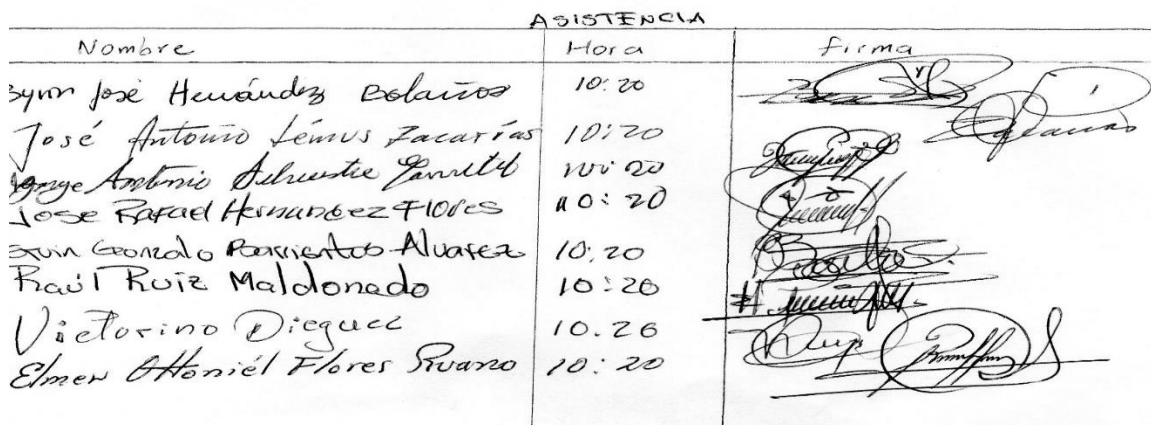 ASISTENCIA
Nombre Hora firma
Byron José Hernández Bolaños 10:20
José Antonio Lémus Zacarías 10:20
Antonio Silvestre 10:20
Jose Rafael Hernandez Flores 10:20
Gonzalo Barrientos Alvarez 10:20
Raúl Ruiz Maldonado 10:20
Victorino Dieguez 10.26
Elmer Othoniél Flores Ruano 10:20